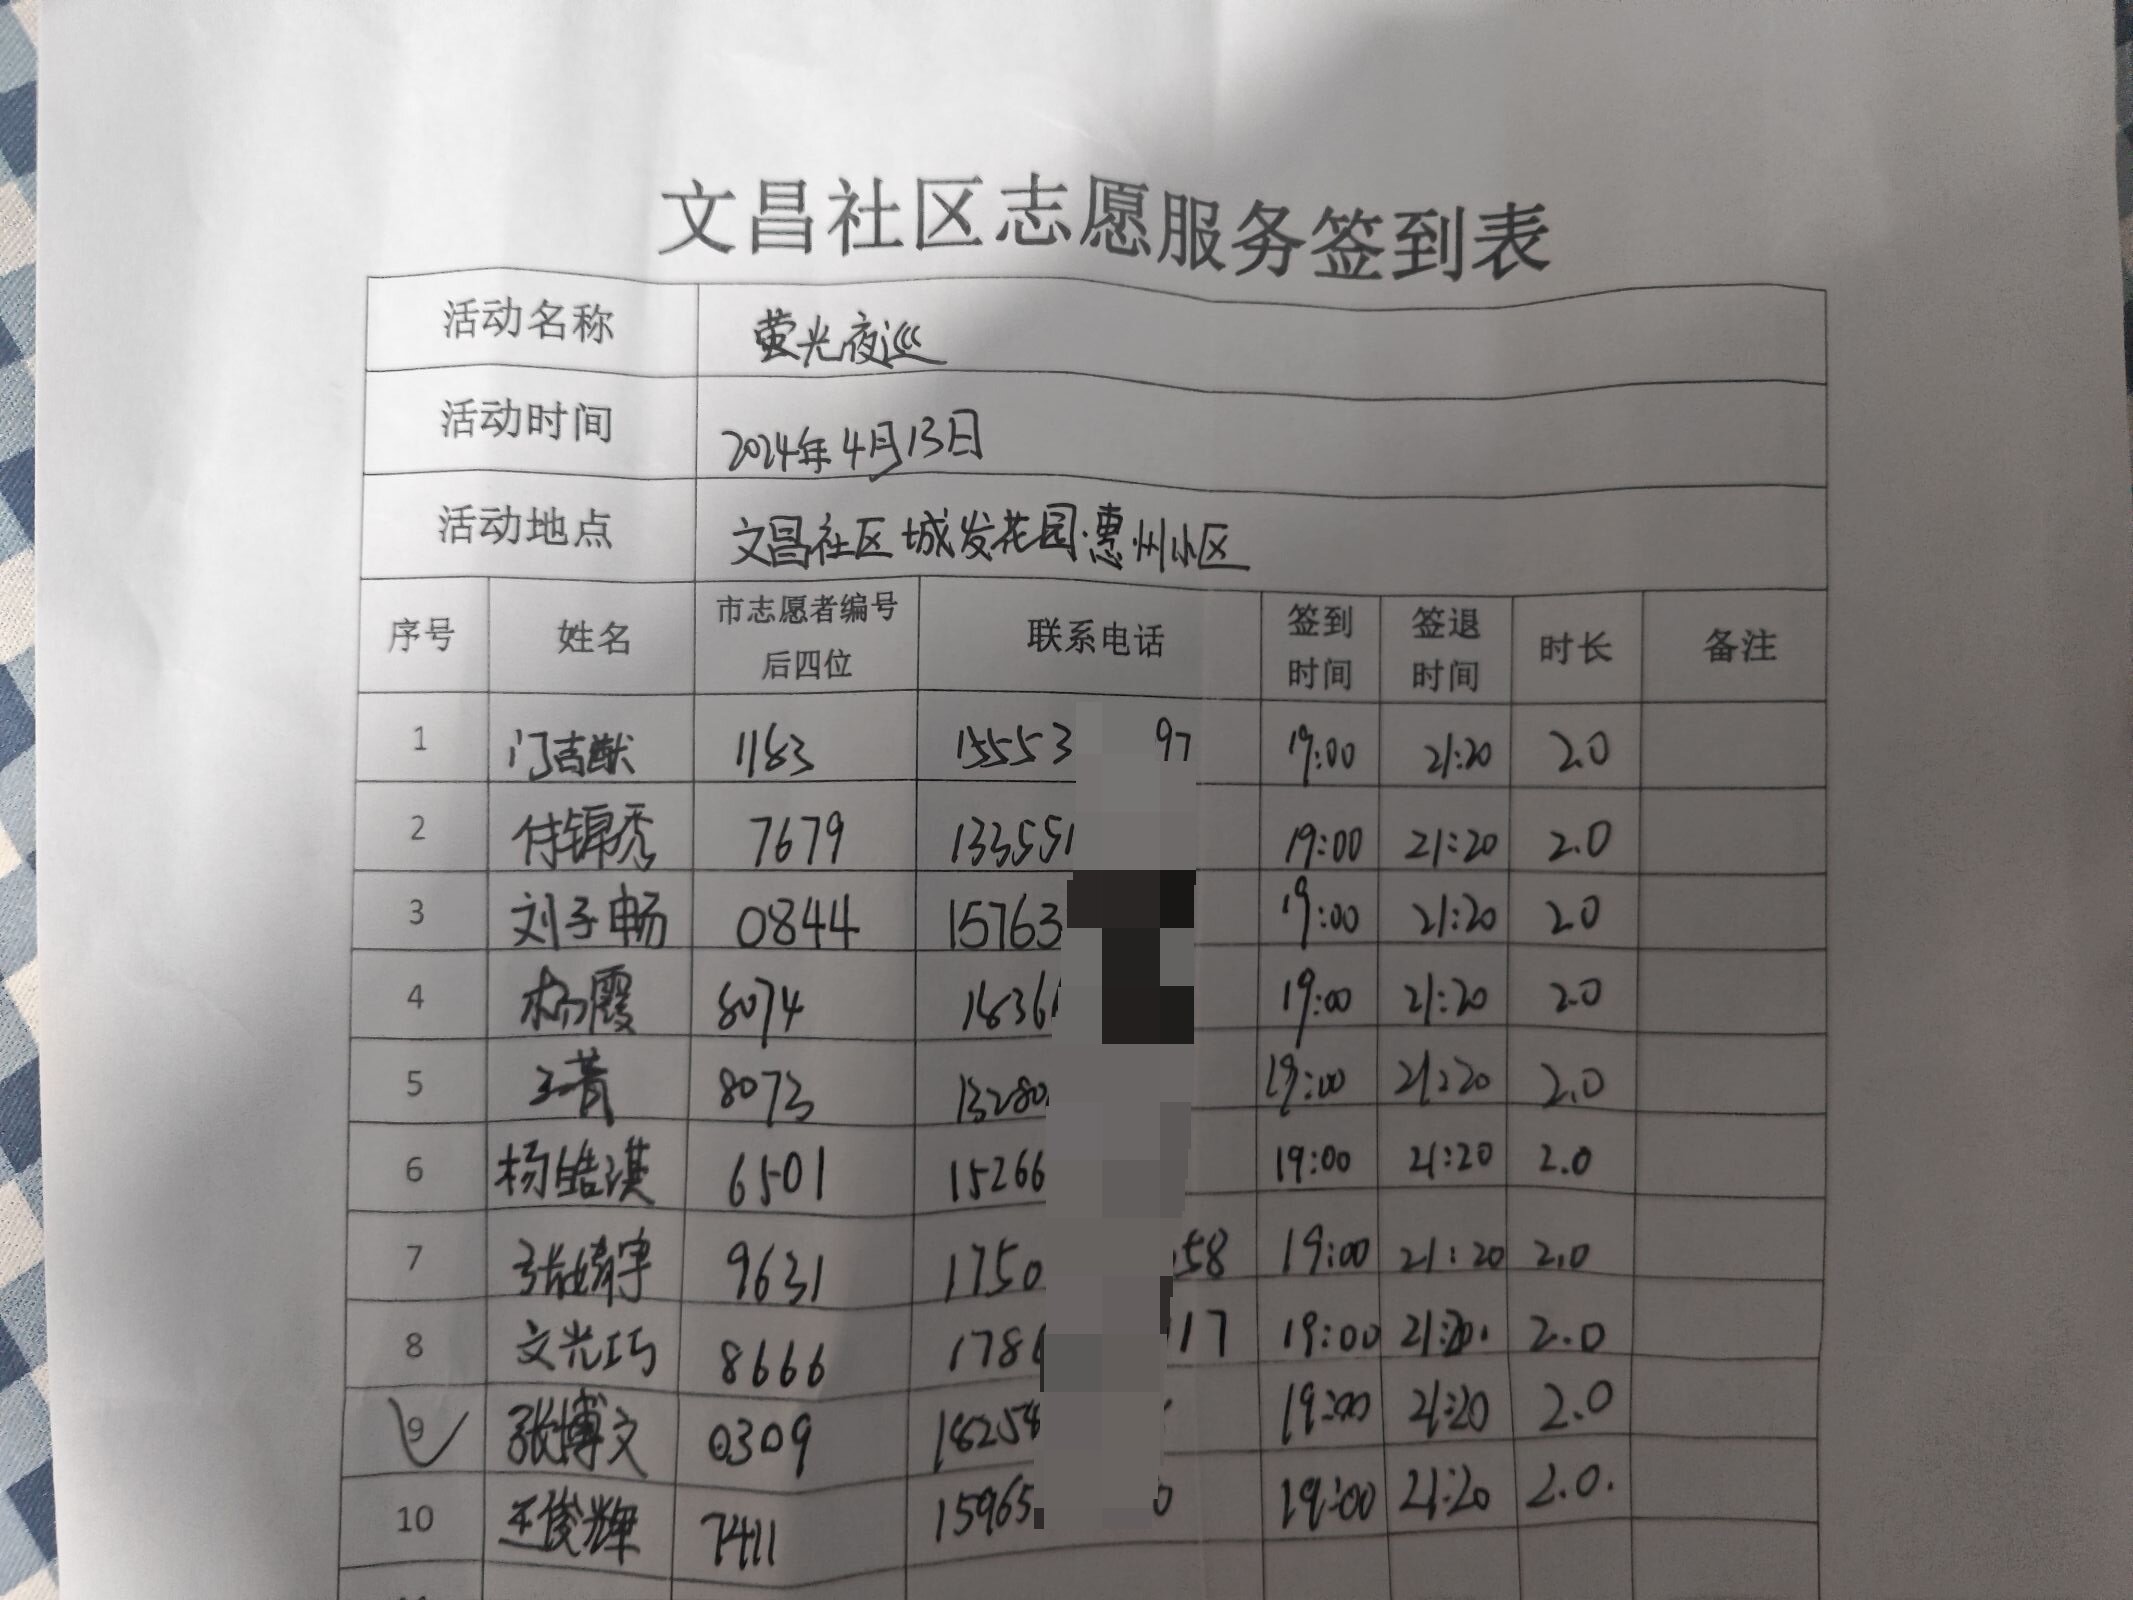 文昌社区志愿服务签到表
活动名称 萤光夜巡
活动时间 2024年4月13日
活动地点 文昌社区城发花园·惠州小区
序号 姓名 市志愿者编号后四位 联系电话 签到时间 签退时间 时长 备注
1 门吉猷 1183 15553 97 19:00 21:20 2.0
2 付锦秀 7679 133551 19:00 21:20 2.0
3 刘子畅 0844 15763 19:00 21:20 2.0
4 杨霞 8074 1836 19:00 21:20 2.0
5 王菁 8073 13280 19:00 21:20 2.0
6 杨皓淇 6501 15266 19:00 21:20 2.0
7 张婧宇 9631 1750 58 19:00 21:20 2.0
8 文光巧 8666 1786 17 19:00 21:20. 2.0
9 张博文 0309 18258 19:00 21:20 2.0
10 王俊辉 7411 15965 0 19:00 21:20 2.0.